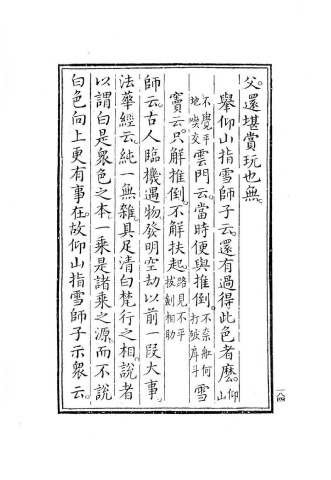 父。還堪賞玩也無。
舉仰山指雪師子云。還有過得此色者麼。仰山
不覺平地喫交雲門云。當時便與推倒。不奈船何打破戽斗雪
竇云。只解推倒。不解扶起。路見不平拔劍相助
師云。古人臨機遇物發明空劫以前一段大事。
法華經云。純一無雜。具足清白梵行之相。說者
以謂白是衆色之本。一乘是諸乘之源。而不說
白色向上更有事在。故仰山指雪師子示衆云。
一八四